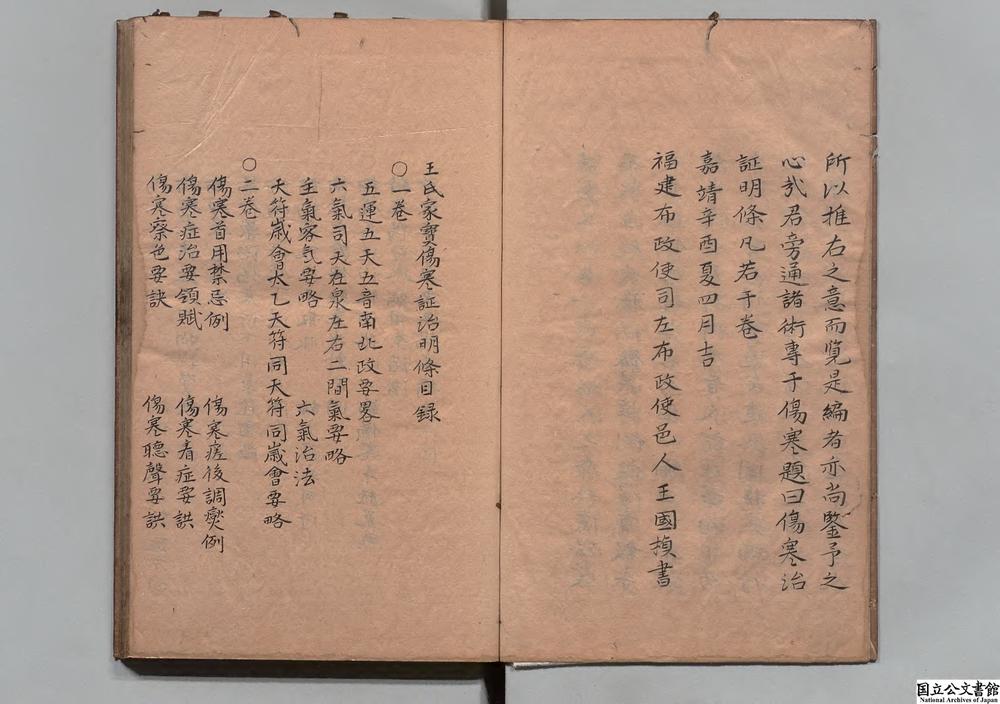 所以推右之意而覧是編者亦尚鍳予之
心㢤君旁通諸術専于傷寒題曰傷寒治
証明條凡若干巻
嘉靖辛酉夏四月吉
福建布政使司左布政使邑人王國楨書
王氏家寳傷寒証治明條目録
〇一巻
五運五天五音南北政要畧
六氣司天在泉左右二間氣要略
主氣客氣要略 六氣治法
天符歳會太乙天符同天符同歳會要略
〇二巻
傷寒首用禁忌例 傷寒瘥後調爕例
傷寒症治要領賦 傷寒看症要訣
傷寒察色要訣 傷寒聴聲要訣
国立公文書館
National Archives of Japan